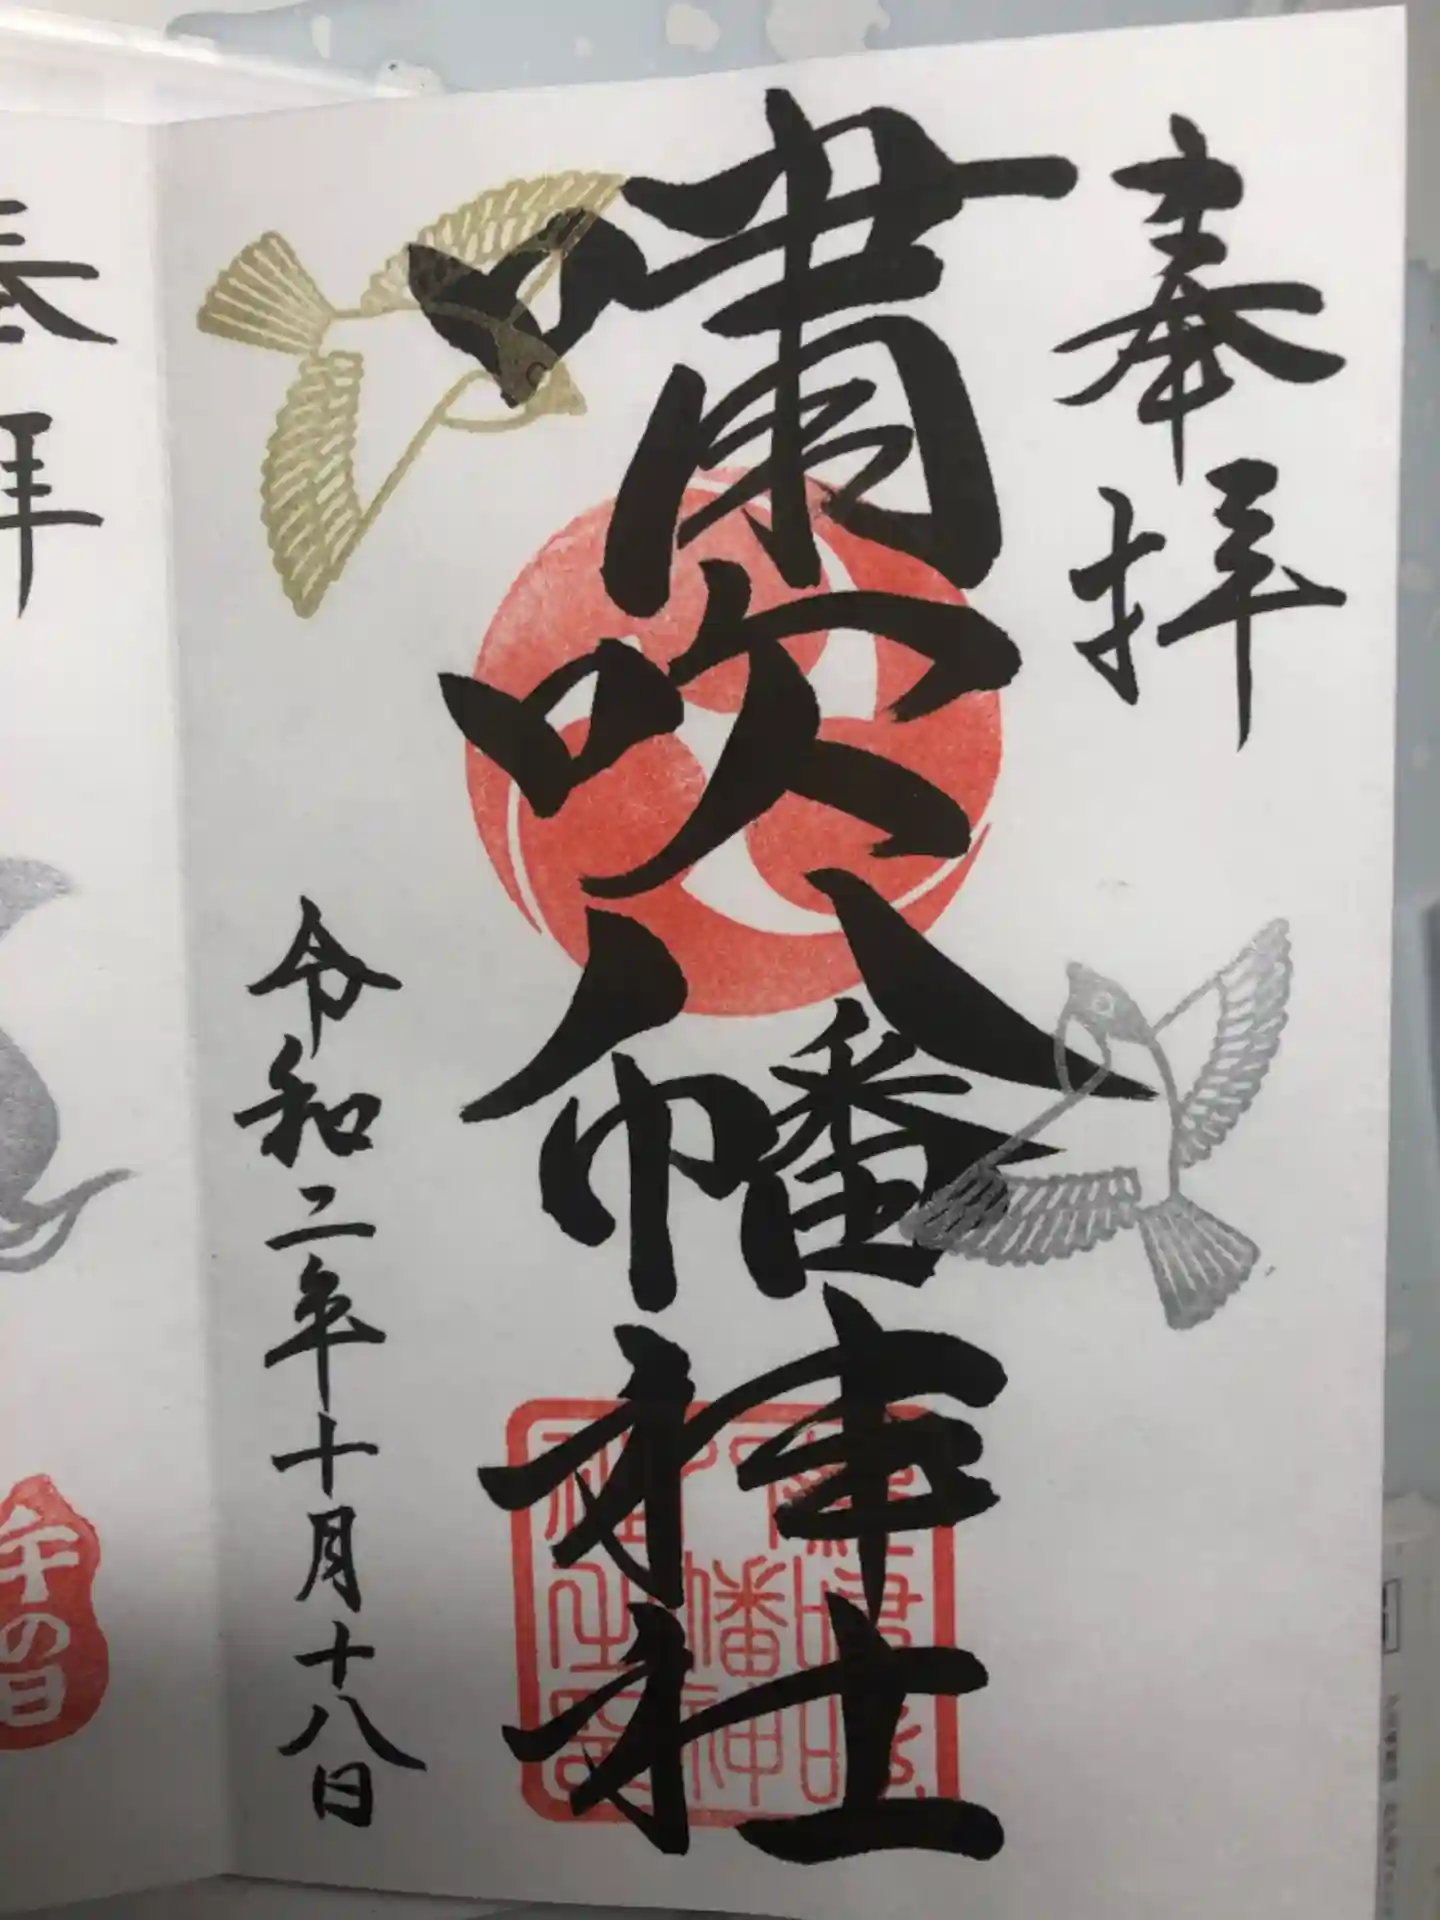 奉拝
嘯吹八幡神社
令和二年十月十八日
拝
午の日